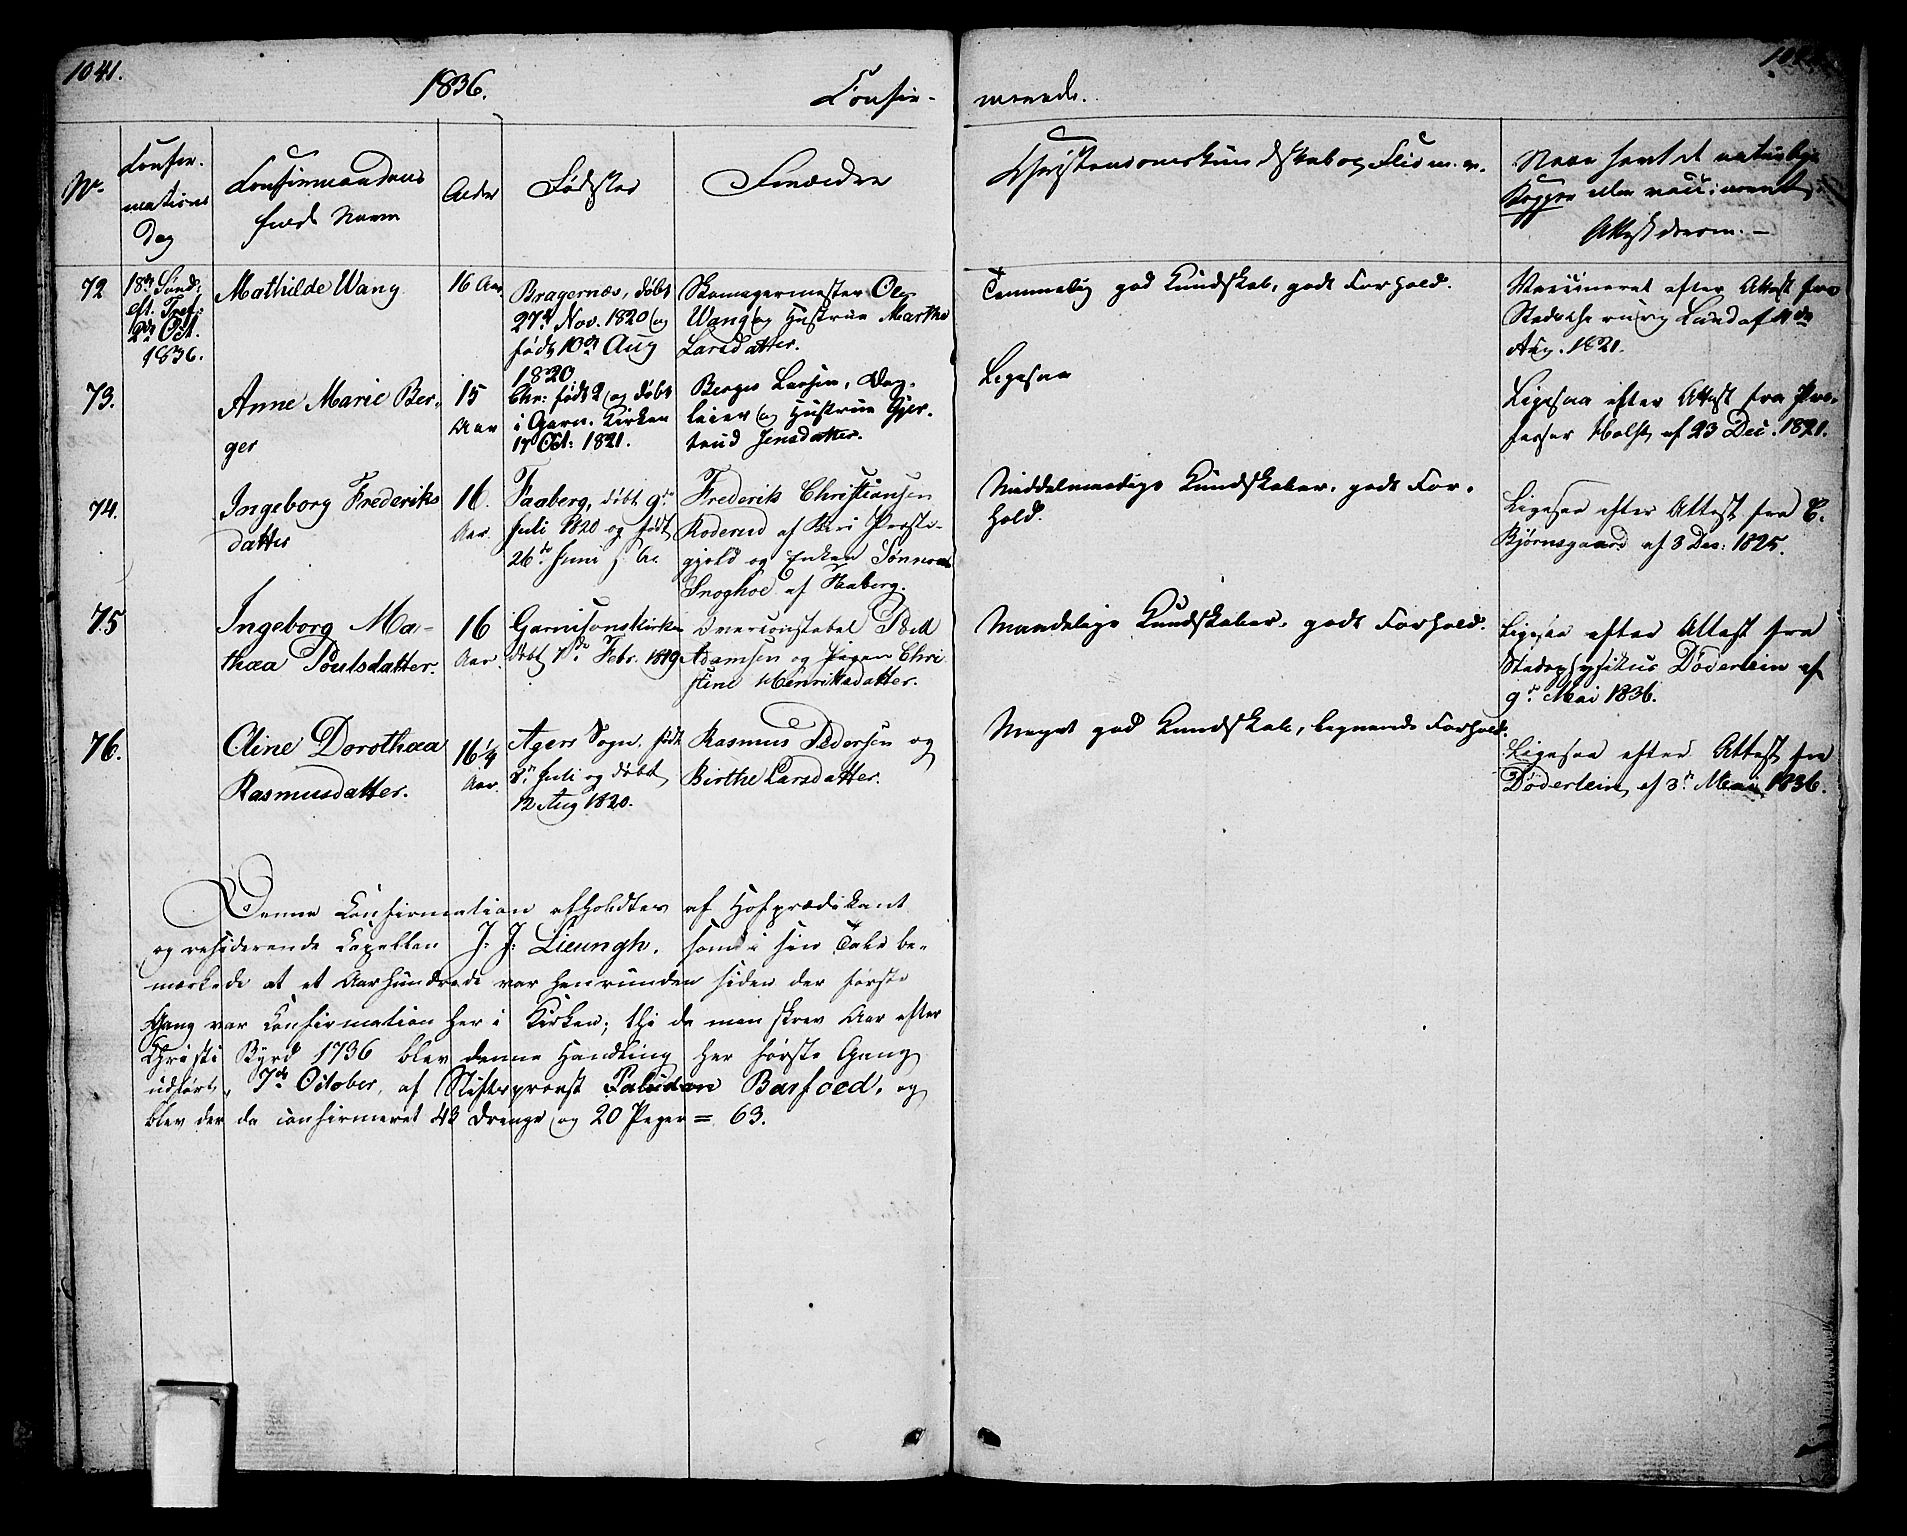 1041.
1836.
Confir-
No.
Confir-
mations
Dag
Confirmandens
fulde Navn
Alder
Fødsted
Forældre
72
18de Sønd:
eft. Tref:
2den Oct.
1836.
Mathilde Wang
16 Aar
Bragernæs, døbt
27de Nov. 1820 og
født 10de Aug
1820
Skomagermester Ole
Wang og Hustrue Marthe
Larsdatter.
73.
Anne Marie Ber-
ger
15
Aar
Chr: født 2 og døbt
i Garn. Kirken
17 Oct: 1821.
Berger Larsen, Dag-
leier og Hustrue Gjer-
trud Jensdatter.
74.
Ingeborg Frederiks
datter
16.
Aar.
Faaberg, døbt 9de
Juli 1820 og født
26de Juni s. A.
Frederik Christiansen
Roderud af Præste-
gjeld og Enken
Snoghoe af Faaberg.
75
Ingeborg Ma-
thæa Poulsdatter.
16
Aar.
Garnisonskirken
døbt 7de Febr. 1819
Overconstabel Poul
Adamsen og Pigen Chri
stine Henriksdatter.
76.
Oline Dorothæa
Rasmusdatter.
16 1/4
Aar.
Agers Sogn, født
Juli og døbt
12 Aug 1820.
Rasmus Pedersen og
Birthe Larsdatter.
Denne Confirmation afholdtes af Hofprædikant
og residerende Capellan J. J. Lieungh, som i sin Tale be-
mærkede at et Aarhundrede var henrunden siden der første
Gang var Confirmation her i Kirken; thi da man skrev Aar efter
Christi Byrd 1736 blev denne Handling her første Gang
udført, 7de October, af Stiftsprovst Paludan Barfoed, og
blev der da confirmeret 43 Drenge og 20 Piger = 63.
merede.
Christendomskundskab og Flid m. v.
Naar havt de naturlige
Kopper eller vaccineret,
Attest derom. -
Temmelig god Kundskab, godt Forhold.
Vaccineret efter Attest fra
Lund af
Aug. 1821.
Ligesaa
Ligesaa efter Attest fra Pro-
fessor Holst af 23 Dec. 1821.
Middelmaadige Kundskaber, godt For-
hold.
Ligesaa efter Attest fra C.
Bjørnsgaard af 3 Dec: 1825.
Maadelige Kundskaber, godt Forhold.
Ligesaa efter Attest fra
Stadsphysikus Döderlein af
9de Mai 1836.
Meget god Kundskab, Forhold.
Ligesaa efter Attest fra
Döderlein af 3de Mai 1836.